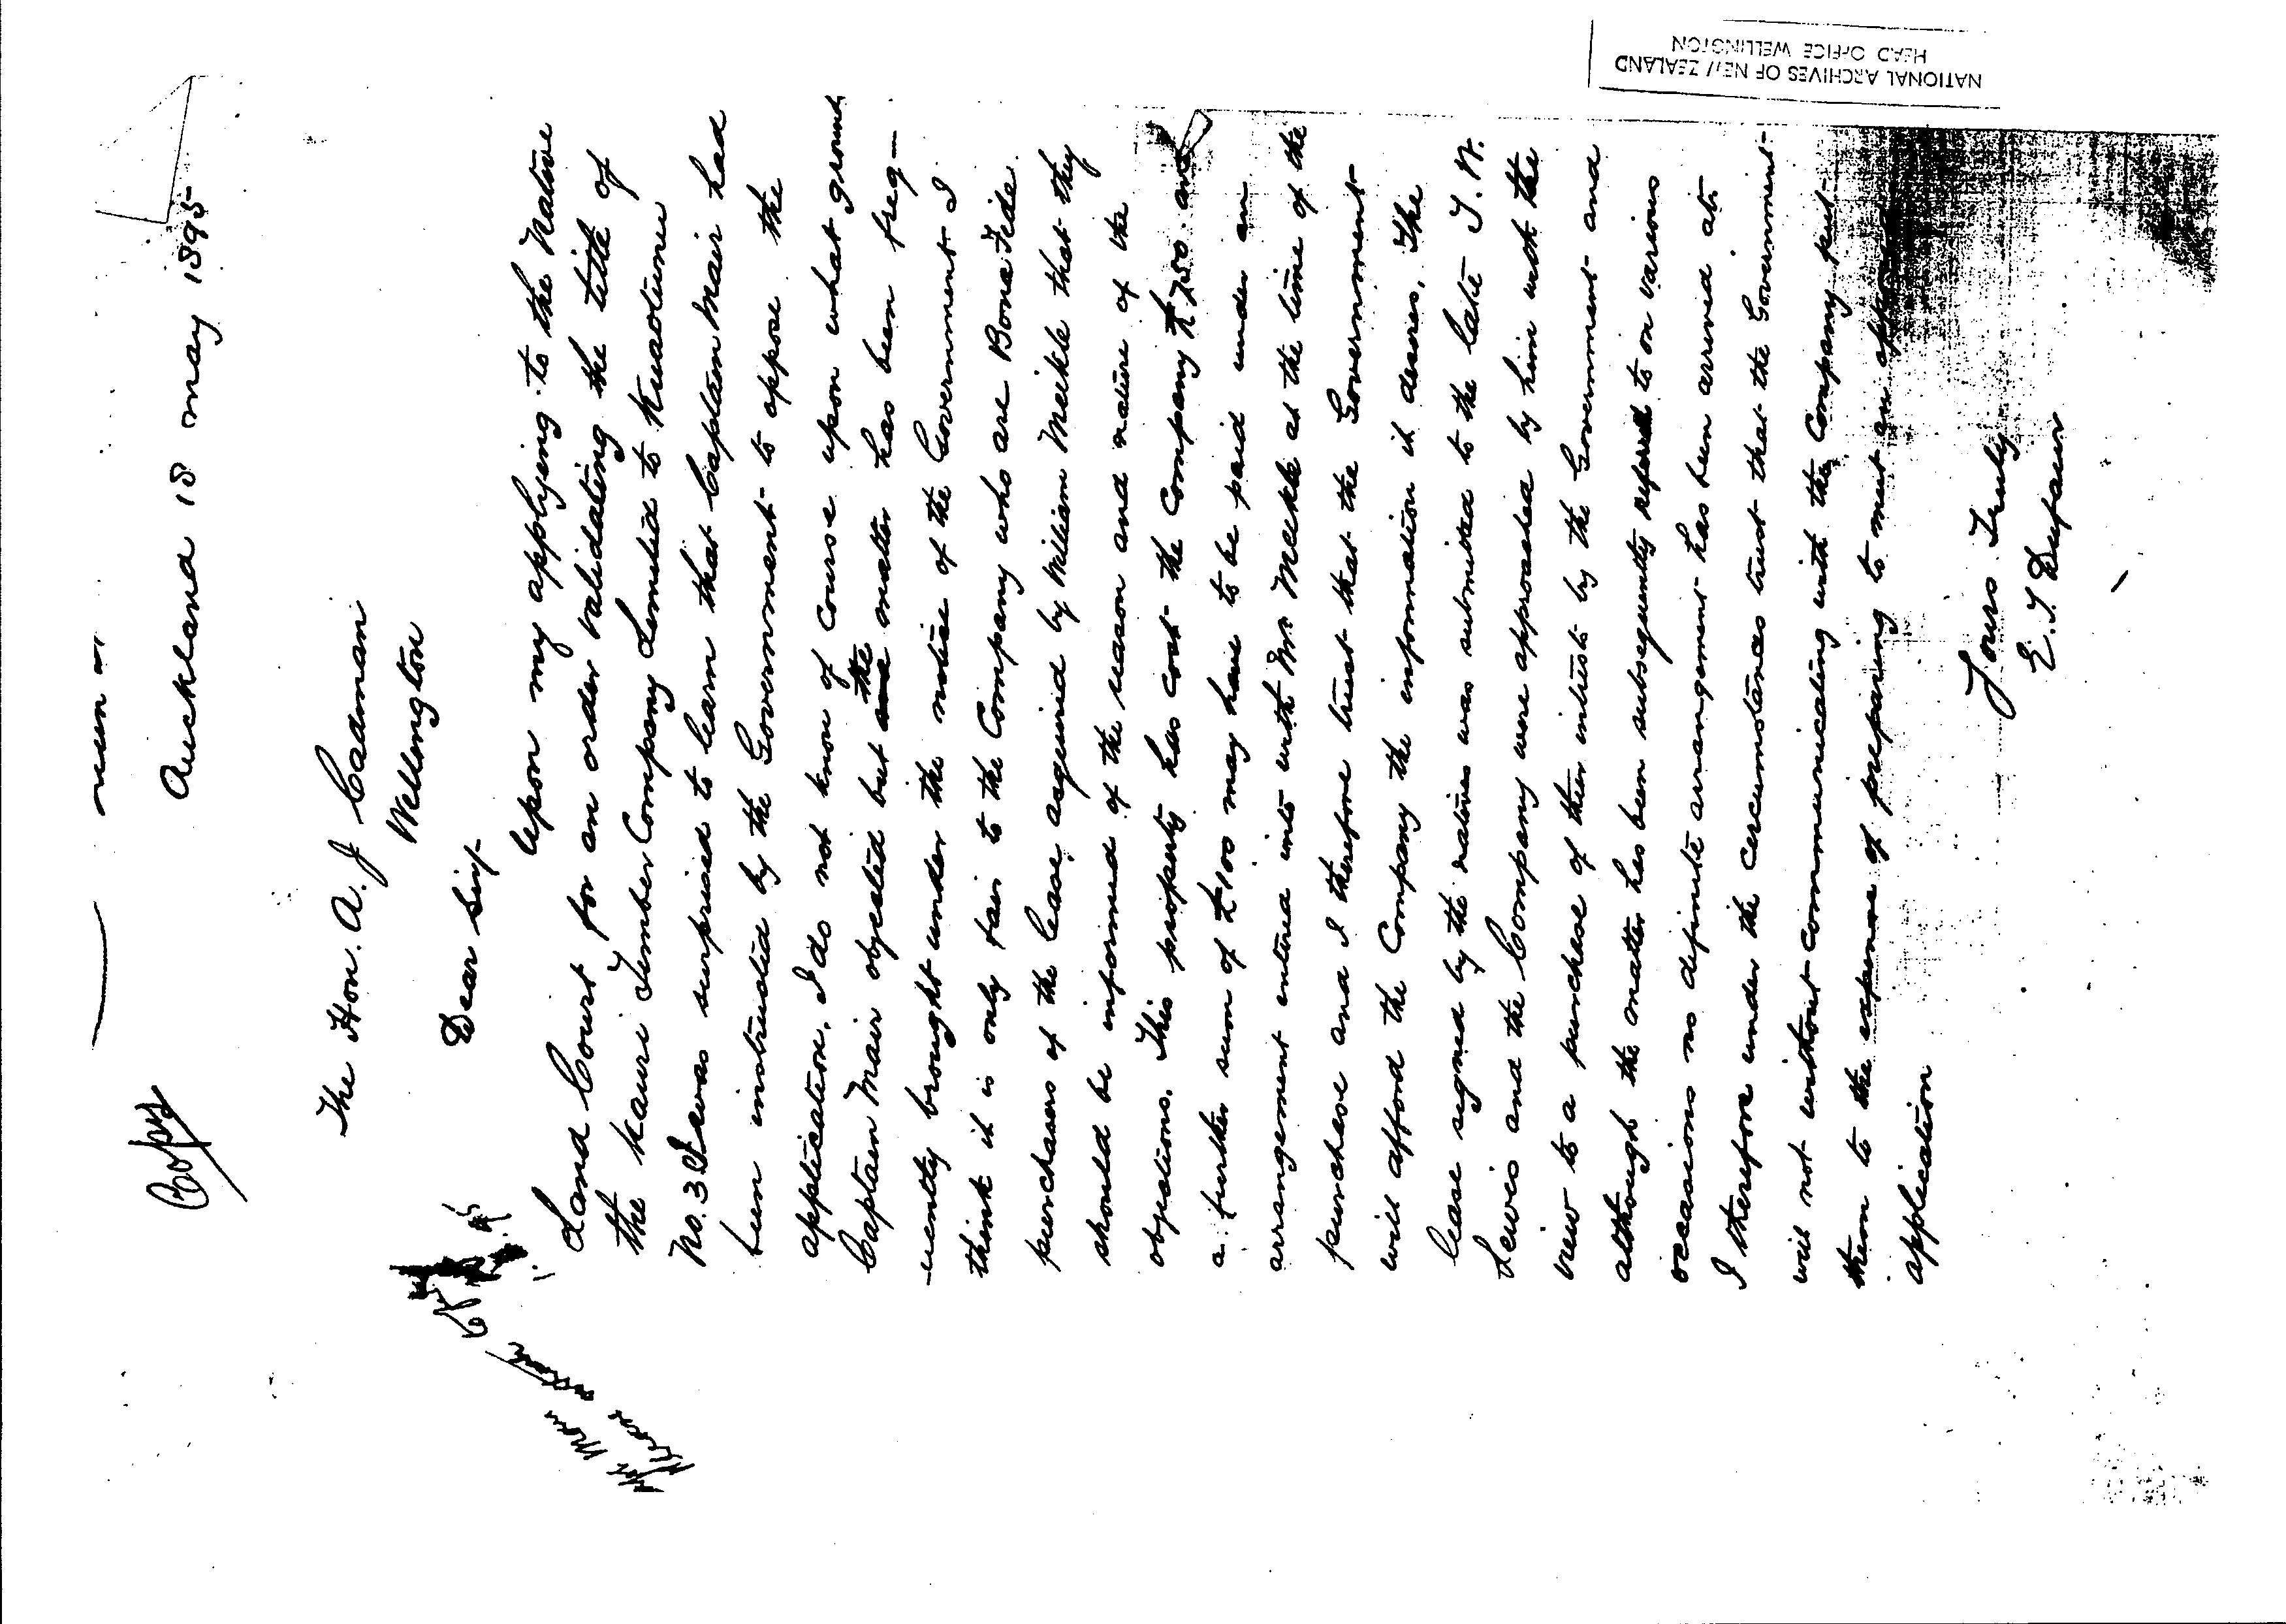 Copy
Auckland 18 May 1895
The Hon. A. J Cadman
Wellington
Dear Sir
Upon my applying to the Native
Land Court for an order validating the title of
the Kauri Timber Company Limited to Kuaotunu
No. 3 I was surprised to learn that Captain Mair had
been instructed by the Government to oppose the
application. I do not know of course upon what ground
Captain Mair objected but the matter has been freq-
-uently brought under the notice of the Government I
think it is only fair to the Company who are Bona Fide
purchasers of the lease, acquired by William Meikle that they
should be informed of the reason and nature of the
objections. This property has cost the Company £750 and
a further sum of £100 may have to be paid under an
arrangement entered into with Mr Meikle at the time of the
purchase and I therefore trust that the Government
will afford the Company the information it desires. The
lease signed by the natives was submitted to the late T. W.
Lewis and the Company were approached by him with the
view to a purchase of their interests by the Government and
although the matter has been subsequently referred to on various
occasions no definite arrangement has been arrived at.
I therefore under the circumstances trust that the Government
will not without communicating with the Company put
them to the expense of preparing to meet an
application
Yours Truly
E. T Dufaur
NATIONAL ARCHIVES OF NEW ZEALAND
HEAD OFFICE WELLINGTON